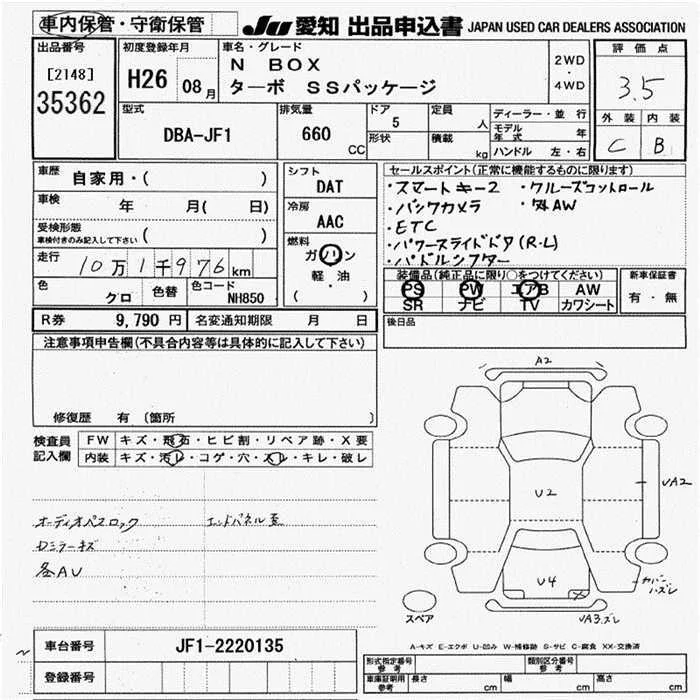 車内保管・守衛保管
JU 愛知 出品申込書 JAPAN USED CAR DEALERS ASSOCIATION
出品番号
[2148]
35362
初度登録年月
H26 08月
車名・グレード
N BOX
ターボ SSパッケージ
2WD
・
4WD
評価点
3.5
外装 内装
C B
型式
DBA-JF1
排気量
660 CC
ドア
5
形状
定員
人
積載
kg
ディーラー・並行
モデル年式 年
ハンドル 左・右
車歴 自家用・( )
車検 年 月( 日)
受検形態
車検付きのみ記入して下さい ( )
走行 10万1千976km
色 クロ 色替 色コード NH850
シフト
DAT
冷房
AAC
燃料
ガソリン
軽・油
( )
セールスポイント(正常に機能するものに限ります)
・スマートキー2 ・クルーズコントロール
・バックカメラ ・外AW
・ETC
・パワースライドドア(R・L)
・パドルシフター
装備品(純正品に限り○をつけてください)
PS PW エアB AW
SR ナビ TV カワシート
新車保証書
有・無
後日品
R券 9,790円 名変通知期限 月 日
注意事項申告欄(不具合内容等は具体的に記入して下さい)
修復歴 有 (箇所 )
検査員
記入欄
FW キズ・飛石・ヒビ割・リペア跡・X要
内装 キズ・汚レ・コゲ・穴・スレ・キレ・破レ
オーディオパスロック
Dミラーキズ
各AU
A2
U2
UA2
U4
カバーハズレ
UA3.ズレ
スペア
A-キズ E-エクボ U-凹み W-補修跡 S-サビ C-腐食 XX-交換済
車台番号 JF1-2220135
登録番号
形式指定番号
参考
類別区分番号
参考
車庫証明用
参考
長さ cm 幅 cm 高さ cm